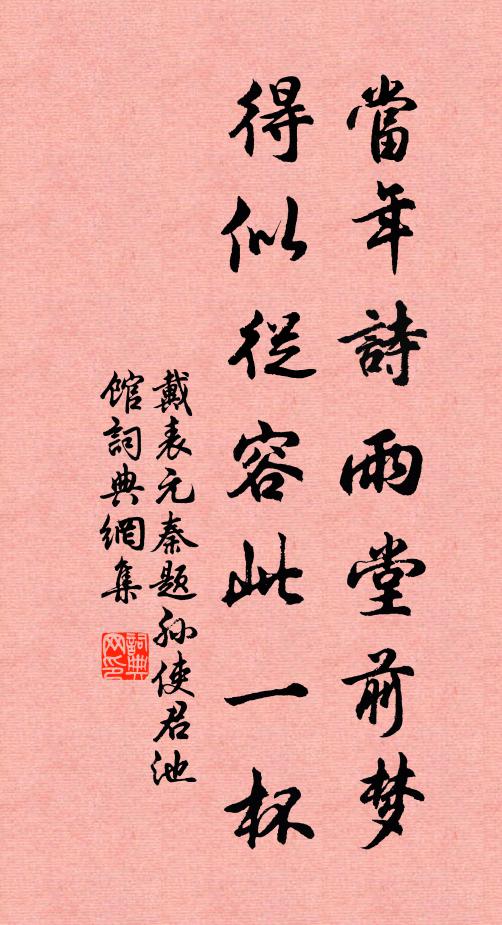 當年詩雨堂前梦
得似從容此一杯
戴表元奏題孙使君池
館詞典網集
詞典网印